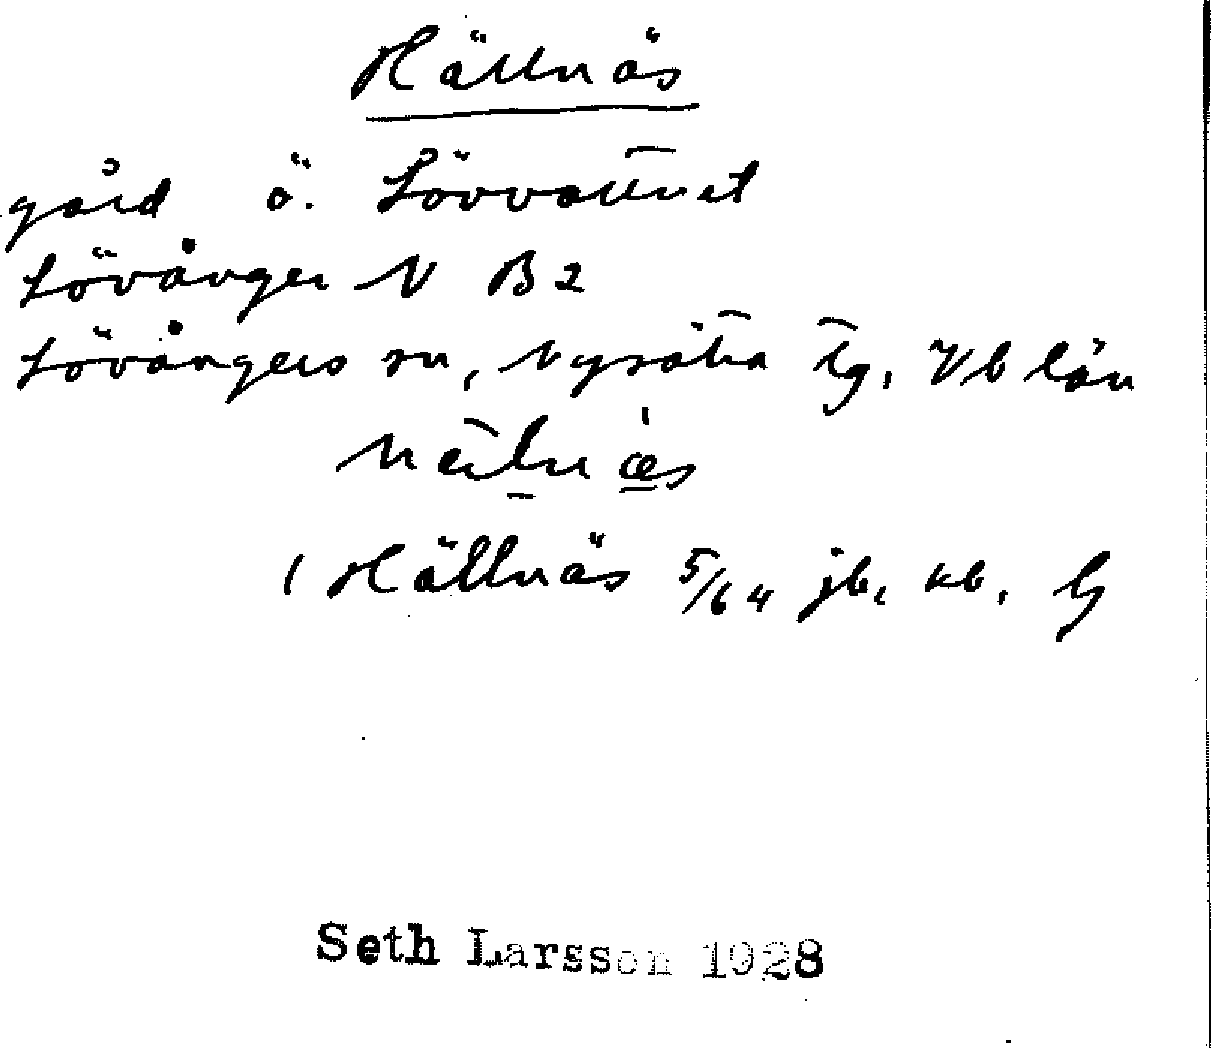 Hällnäs
gård ö. Lövvattnet
Lövånger N B2
Lövångers sn, Nysätra tg, Vb län
(Hällnäs 5/64 jb, kb, G
Seth Larsson 1928